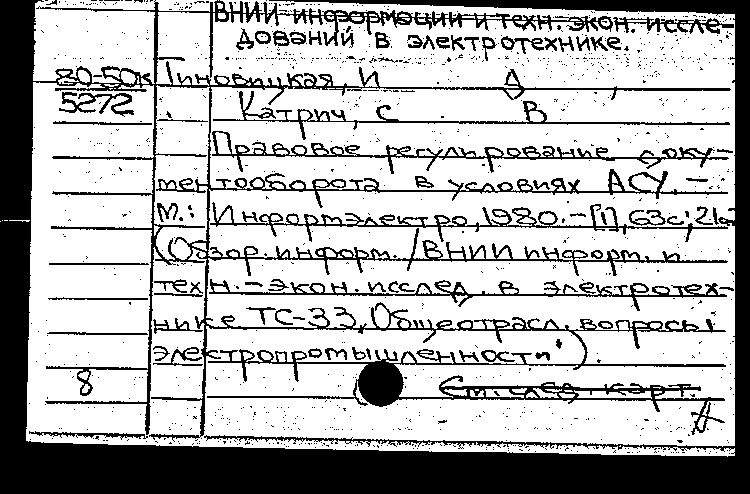 ВНИИ информации и техн. экон. иссле-
дований в электротехнике.
80-50к Тиновицкая, И Д
5272 Катрич, С В
Правовое регулирование доку-
ментооборота в условиях АСУ. -
М.: Информэлектро, 1980. - [1], 63с; 21см
(Обзор. информ. / ВНИИ информ. и
техн. - экон. исслед. в электротех-
нике ТС-33, Общеотрасл. вопросы
электропромышленности).
8 См. след. карт.